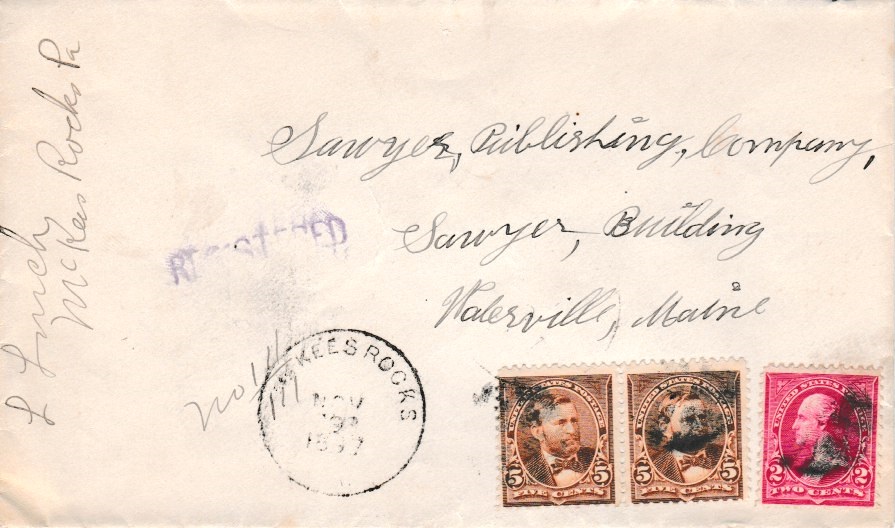 Sawyer, Publishing, Company,
Sawyer, Building
Waterville, Maine
McKees Rocks Pa
REGISTERED
No
McKEES ROCKS
NOV
1897
UNITED STATES POSTAGE
5 5
FIVE CENTS
UNITED STATES POSTAGE
5 5
FIVE CENTS
UNITED STATES POSTAGE
2 2
TWO CENTS